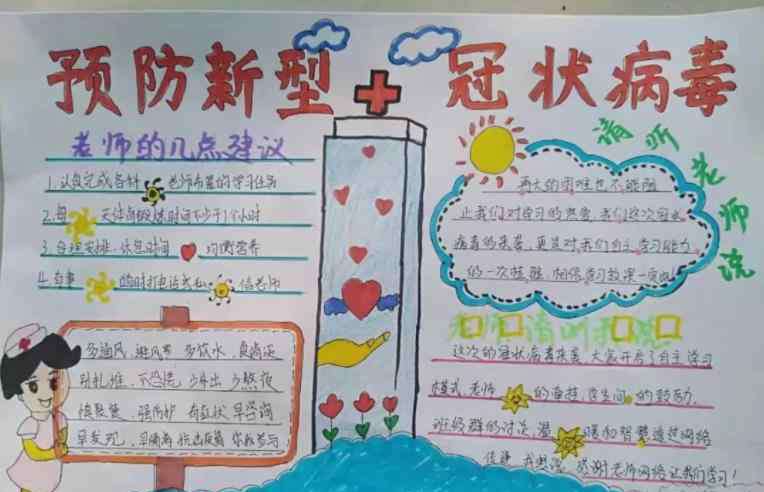 预防新型 冠状病毒
老师的几点建议
1.认真完成各科 老师布置的学习任务
2.每 天体育锻炼时间不少于1个小时
3.合理安排 休息时间 均衡营养
4.有事 随时打电话或私 信老师
请听老师说
再大的困难也不能阻
止我们对学习的热爱,我们这次冠状
病毒的来袭,更是对我们自主学习能力
的一次 相信学习效果一定
老师请听我说
这次的冠状病毒来袭 大家开启了自主学习
模式,老师 的 学生间 的鼓励,
班级群的对决,温 暖和智慧通过网络
传递 我想说 感谢老师网络让我们学习!
多通风 避风寒 多饮水 食清淡
别扎堆 不恐慌 少外出 少熬夜
慎聚餐 强防护 有症状 早咨询
早发现 早隔离 你我参与